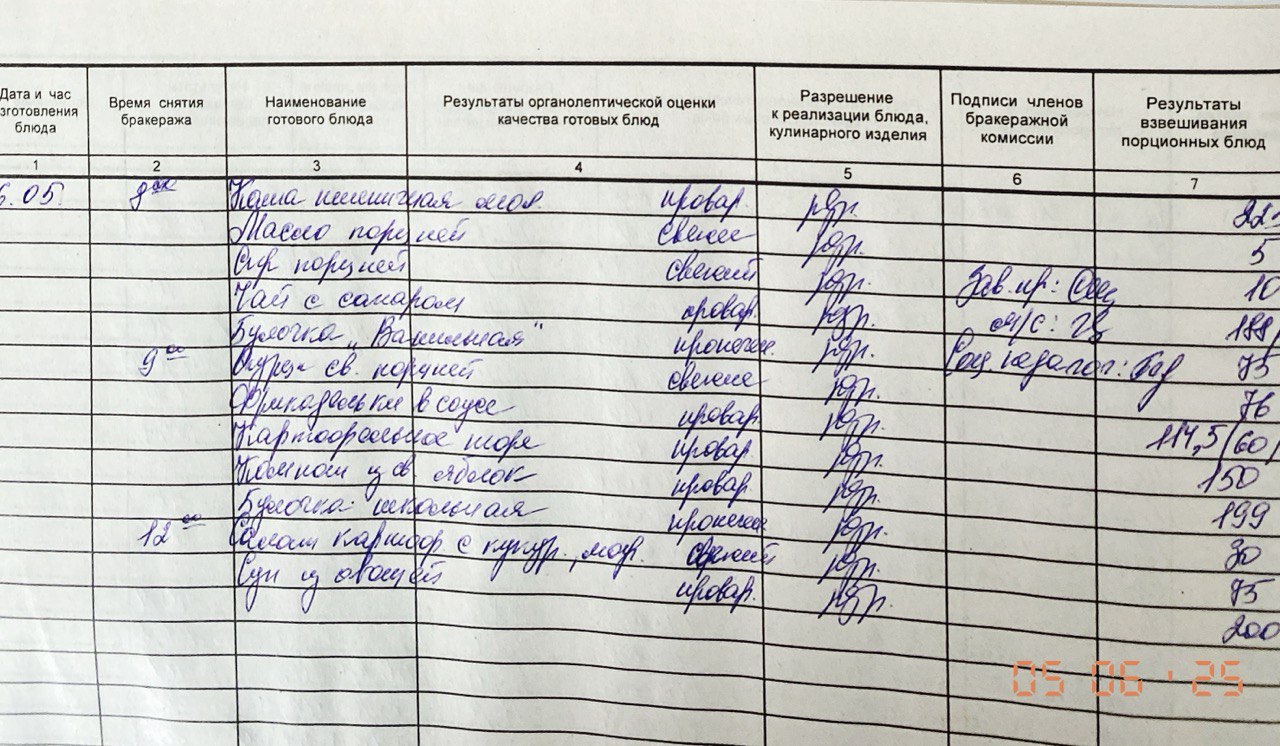 Дата и час зготовления блюда | Время снятия бракеража | Наименование готового блюда | Результаты органолептической оценки качества готовых блюд | Разрешение к реализации блюда, кулинарного изделия | Подписи членов бракеражной комиссии | Результаты взвешивания порционных блюд
1 2 3 4 5 6 7
.05 Каша пшеничная мол. провар. рдр.
Масло порцией свежее рдр. 5
Сыр порцией свежий рдр. Зав. пр.: 10
Чай с сахаром провар. рдр. м/с: 188
Булочка „Ванильная" пропечен. рдр. Соц. педагог: 75
9 00 Огурец св. порцией свежие рдр. 76
Фрикадельки в соусе провар. рдр. 114,5/60
Картофельное пюре провар. рдр. 150
Компот из св яблок провар. рдр. 199
Булочка школьная пропечен рдр. 30
12 00 Салат картоф с кукур., мор. свежий рдр. 75
Суп из овощей провар. рдр. 200
05 06 '25